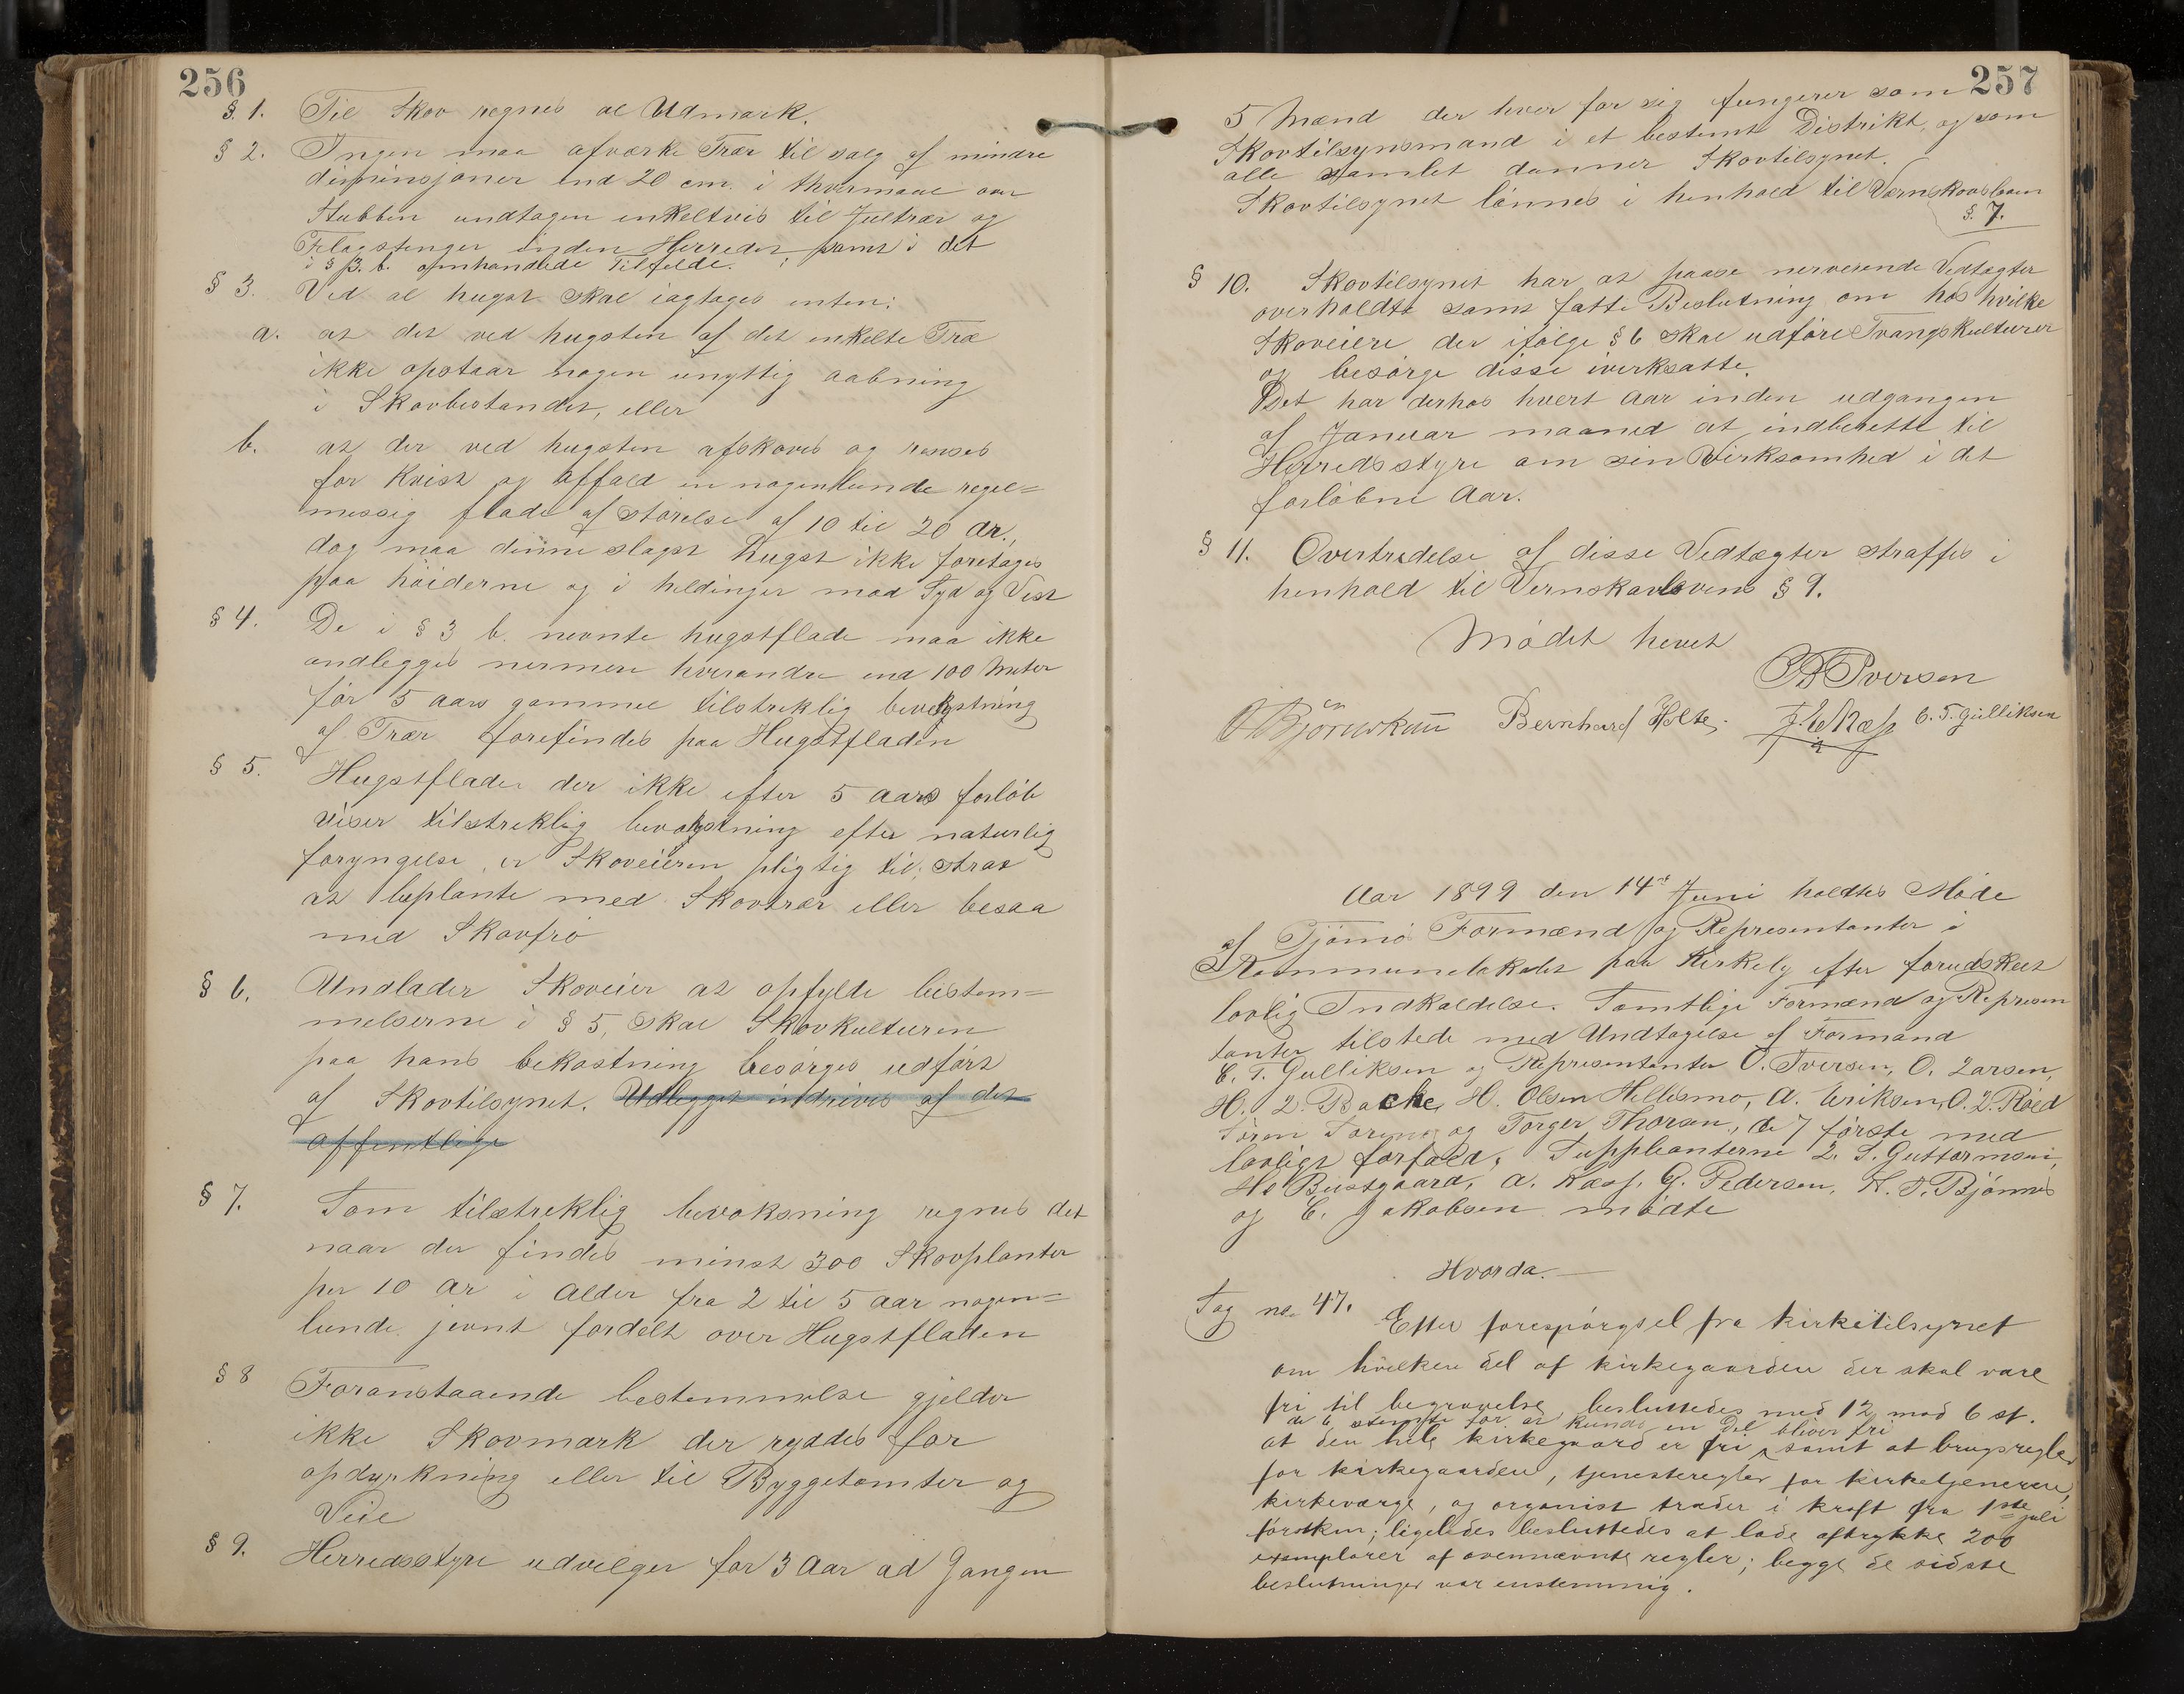 256
§. 1. Til Skov regnes al Udmark.
§ 2. Ingen maa afværke Trær til salg af mindre
diminsjoner end 20 cm. i thvermaal over
Stubben undtagen enkeltvis til Jultrær og
Flagstenger inden Herredet, samt i det
i § 3. b. omhandlede Tilfelde.
§ 3. Ved al hugst skal iagtages enten:
a. at det ved hugsten af det enkelte Træ
ikke opstaar nogen unyttig aabning
i Skovbestandet, eller
b. at der ved hugsten afskoves og renses
for Kvist og affald en nogenlunde regel=
messig flade af störelse af 10 til 20 ar,
dog maa denne slags hugst ikke foretages
paa höiderne og i heldinger mod Syd og Vest
§ 4. De i § 3 b. nevnte hugstflade maa ikke
andlegges nermere hverandre end 100 Meter
för 5 aars gammel tilstreklig bevoksning
af Trær forefindes paa Hugstfladen
§ 5. Hugstflader der ikke efter 5 aars forlöb
viser tilstreklig bevoksning efter naturlig
foryngelse, er Skoveieren pligtig til, strax
at beplante med Skovtrær eller besaa
med Skovfrö
§ 6. Undlader Skoveier at opfylde bestem=
melserne i § 5, skal Skovkulturen
paa hans bekostning besörges udfört
af Skovtilsynet. Udlegget indrives af det
offentlige
§ 7. Som tilstreklig bevoksning regnes det
naar der findes minst 300 Skovplanter
per 10 ar i alder fra 2 til 5 aar nogen=
lunde jevnt fordelt over Hugstfladen
§ 8 Foranstaaende bestemmelse gjelder
ikke Skovmark der ryddes for
opdyrkning eller til Byggetomter og
Veie
§ 9. Herredsstyre udvelger for 3 Aar ad Gangen
257
5 Mænd der hver for sig fungerer som
Skovtilsynsmand i et bestemt Distrikt, og som
alle samlet danner Skovtilsynet.
Skovtilsynet lönnes i henhold til Værnskovloven
§. 7.
§ 10. Skovtilsynet har at paase nerverende Vedtægter
overholdte samt fatte Beslutning om hos hvilke
Skoveiere der ifölge § 6 skal udföres Tvangskulturer
og besörge disse iverksatte.
Det har derhos hvert Aar inden udgangen
af Januar maaned at indberette til
Herredsstyre om sin Virksomhed i det
forlöbne Aar.
§ 11. Overtredelse af disse Vedtægter straffes i
henhold til Vernskovlovens § 9.
Mödet hevet
Iversen
Bernhard Holte. C. T. Gulliksen
Aar 1899 den 14de Juni holdtes Möde
af Tjömö Formænd og Representanter i
Kommunelokalet paa Kirkely efter forudskeet
lovlig Indkaldelse. Samtlige Formænd og Represen
tanter tilstede med Undtagelse af Formand
C. T. Gulliksen og Representanter O. Iversen, O. Larsen,
H. L. Backe, H. Olsen Hellesmo, A. Eriksen, O. L. Röed
Sören Sörens og Torger Thorsen, de 7 förste med
lovligt forfald. Suppleanterne L. S. Guttormsen,
Bustgaard, A. Kass, G. Pedersen, H. P. Bjönnes
og E. Jakobsen mödte
Hvorda.
Sag no. 47. Efter forespörgsel fra kirketilsynet
om hvilken del af kirkegaarden der skal være
fri til begravelse, besluttedes med 12 mod 6 st.
de 6 stemte for at kunde en del bliver fri
at den hele kirkegaard er fri samt at brugsregler
for kirkegaarden, tjenesteregler for kirketjeneren,
kirkeværge, og organist træder i kraft fra 1ste juli
förstkm; ligeledes besluttedes at lade aftrykke 200
exemplarer af ovennævnte regler; begge de sidste
beslutninger var enstemmig.